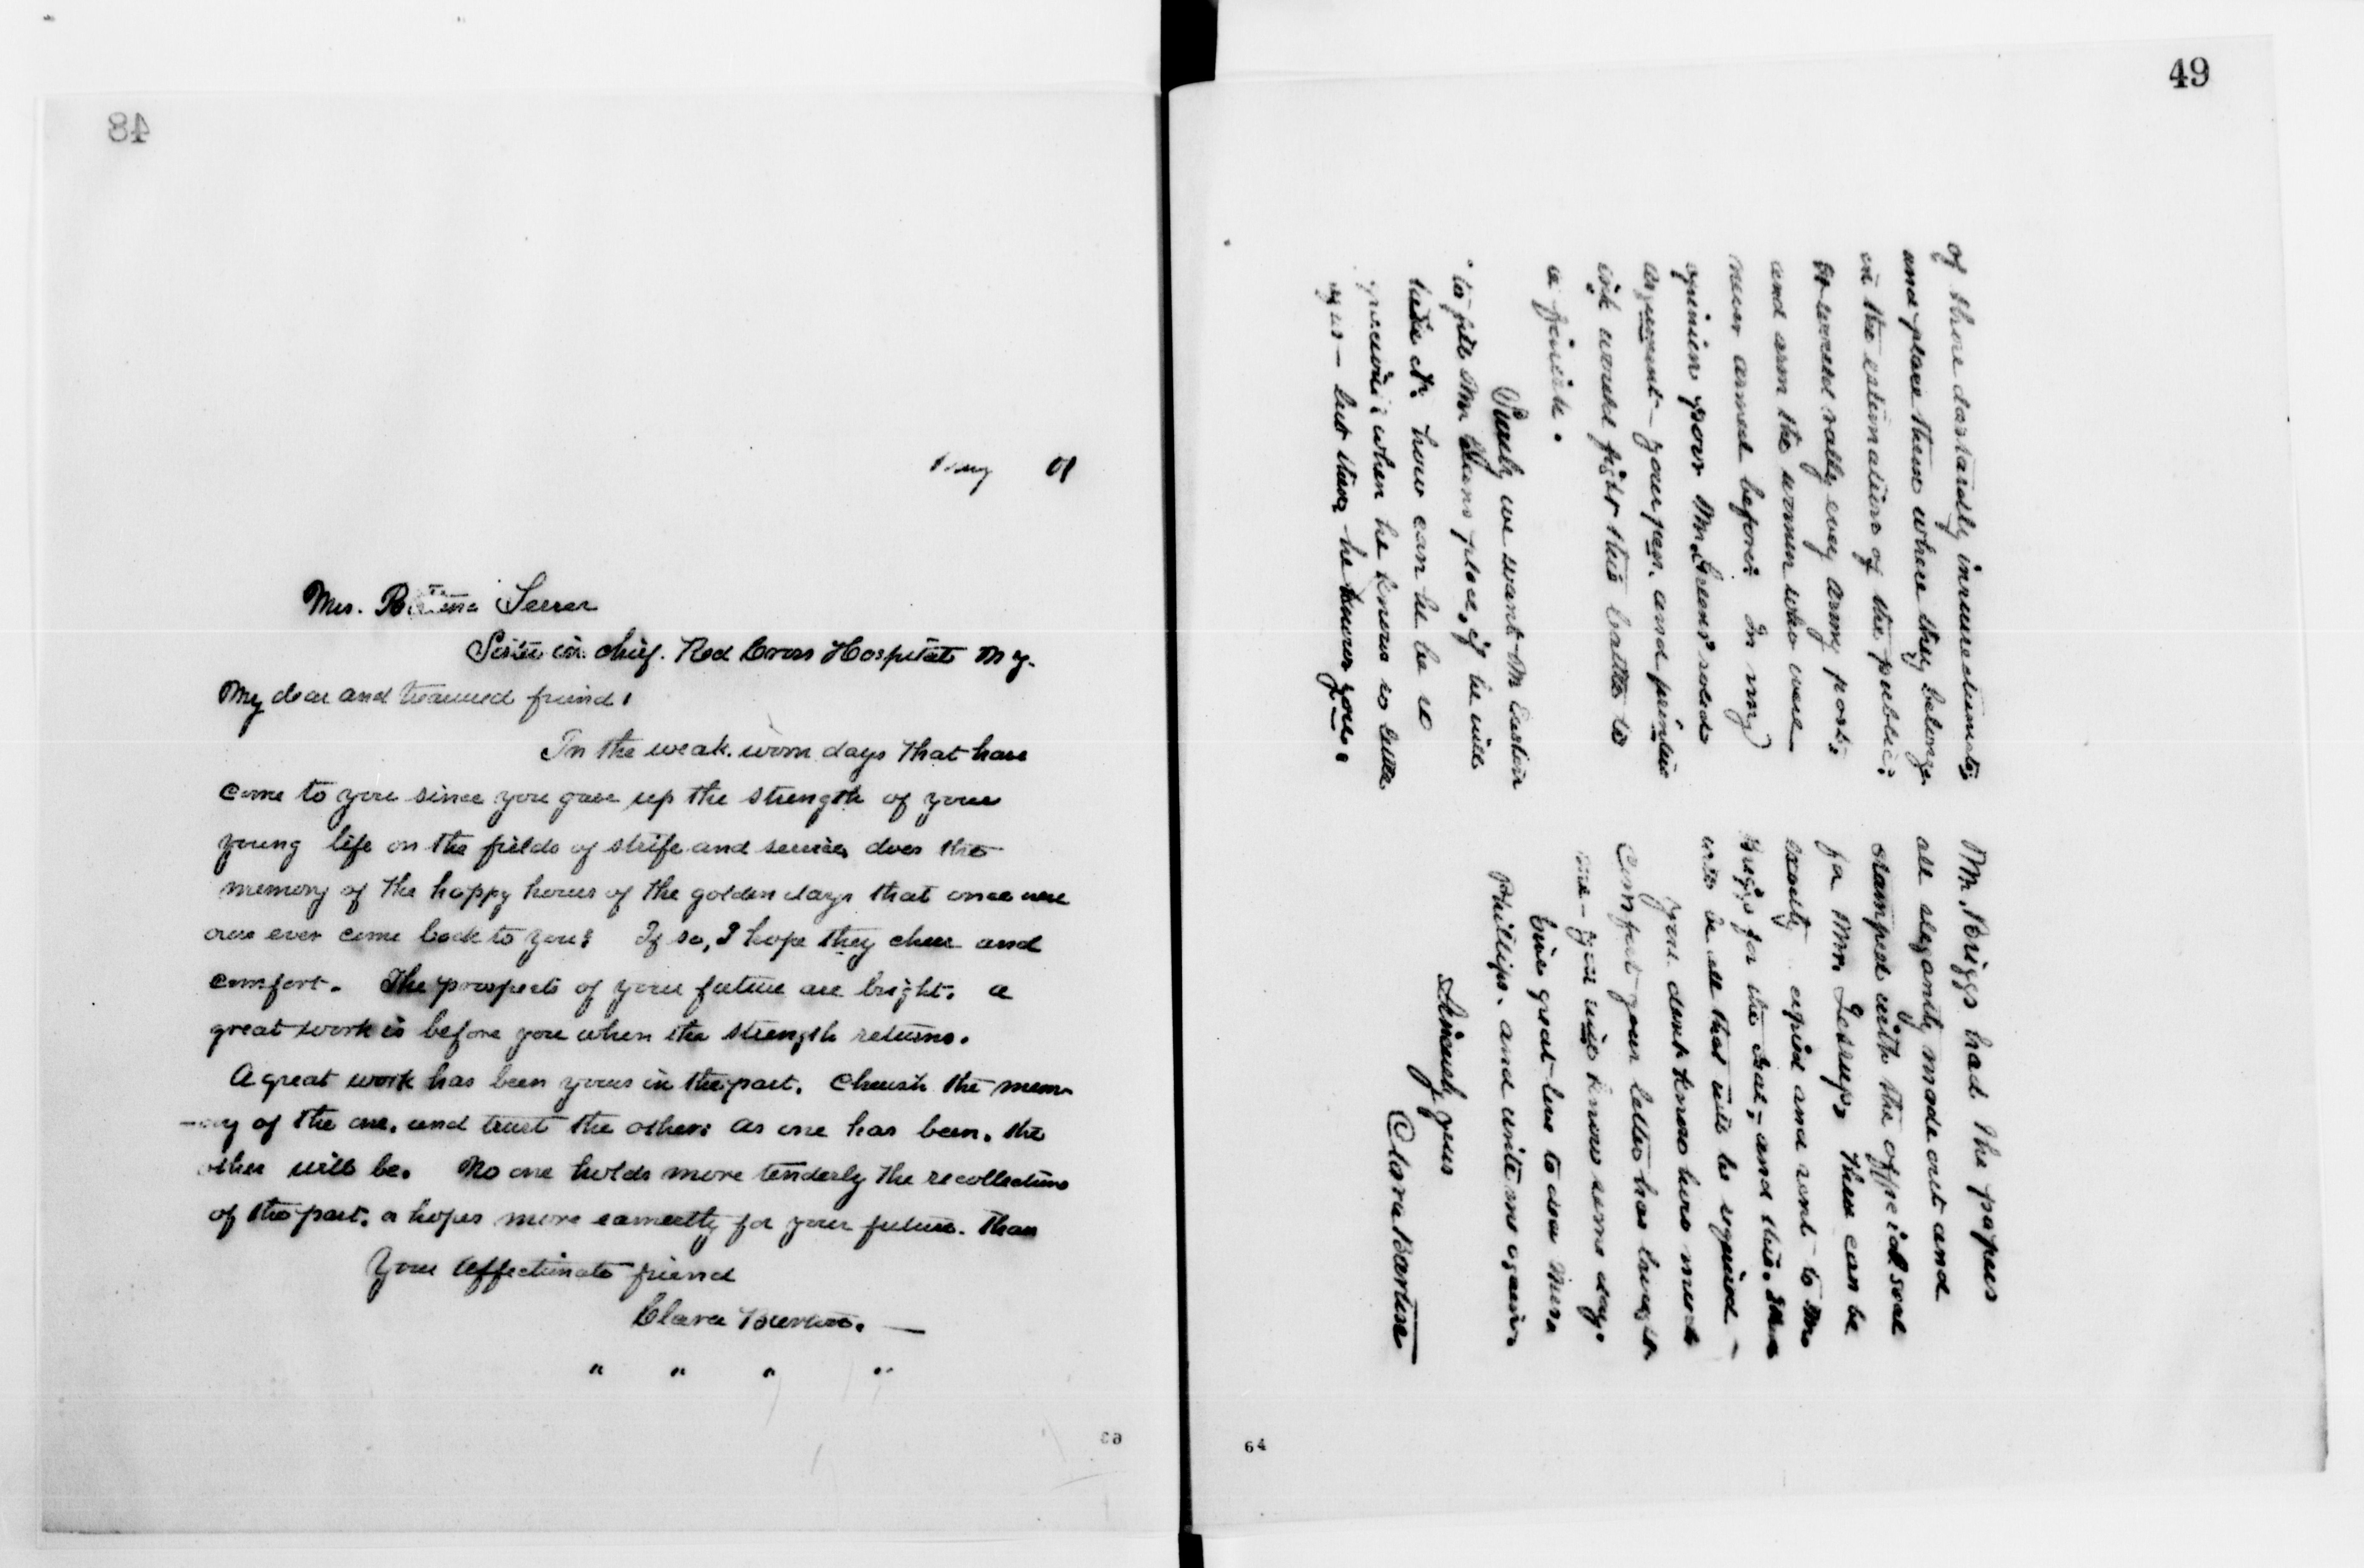 48
May 01
Mrs. Bettina Lesser
Sister in chief. Red Cross Hospital N Y.
My dear and treasured friend,
In the weak, worn days that have
come to you since you gave up the strength of your
young life on the fields of strife and service, does the
memory of the happy hours of the golden days that once were
ours ever come back to you? If so, I hope they cheer and
comfort. The prospects of your future are bright. a
great work is before you when the strength returns.
A great work has been yours in the past. Cherish the mem-
-ory of the one, and trust the other: as one has been, the
other will be. No one holds more tenderly the recollections
of the past, or hopes more earnestly for your future. than
Your affectionate friend
Clara Barton.—
" " " "
49
of those dastardly insinuations
and place them where they belong
in the estimation of the public:
It would rally every army post,
and arm the women who were
never armed before: In my
opinion poor Mr. Greens' noted
argument – your pen, and printers
ink would fight this battle to
a finish.
Surely we want Mr Easton
to fill Mr. Greens place, if he will
take it. how can he be so
gracious: when he knows so little
of us – but then, he knows you.
Mr. Briggs had the papers
all elegantly made out and
stamped with the official seal
for Mrs. Jessup. These can be
exactly copied and sent to Mr
Briggs for the seal, and this, I think
will be all that will be required –
You dont know how much
comfort your letter has brought
me – you will know some day.
Give great love to dear Mrs
Phillips. and write me again
Sincerely yours
Clara Barton
64